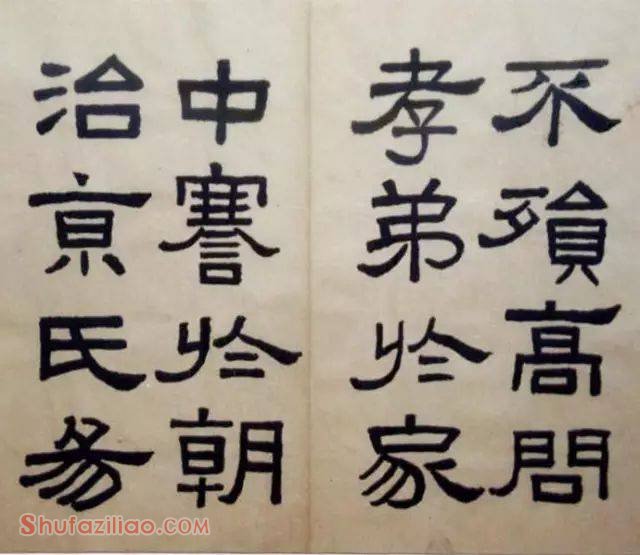 不殞高問
孝弟於家
中謇於朝
治京氏易
Shufaziliao.COM